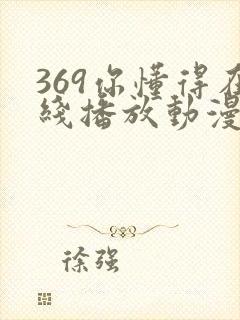 369你懂得在
綫播放動漫
徐强